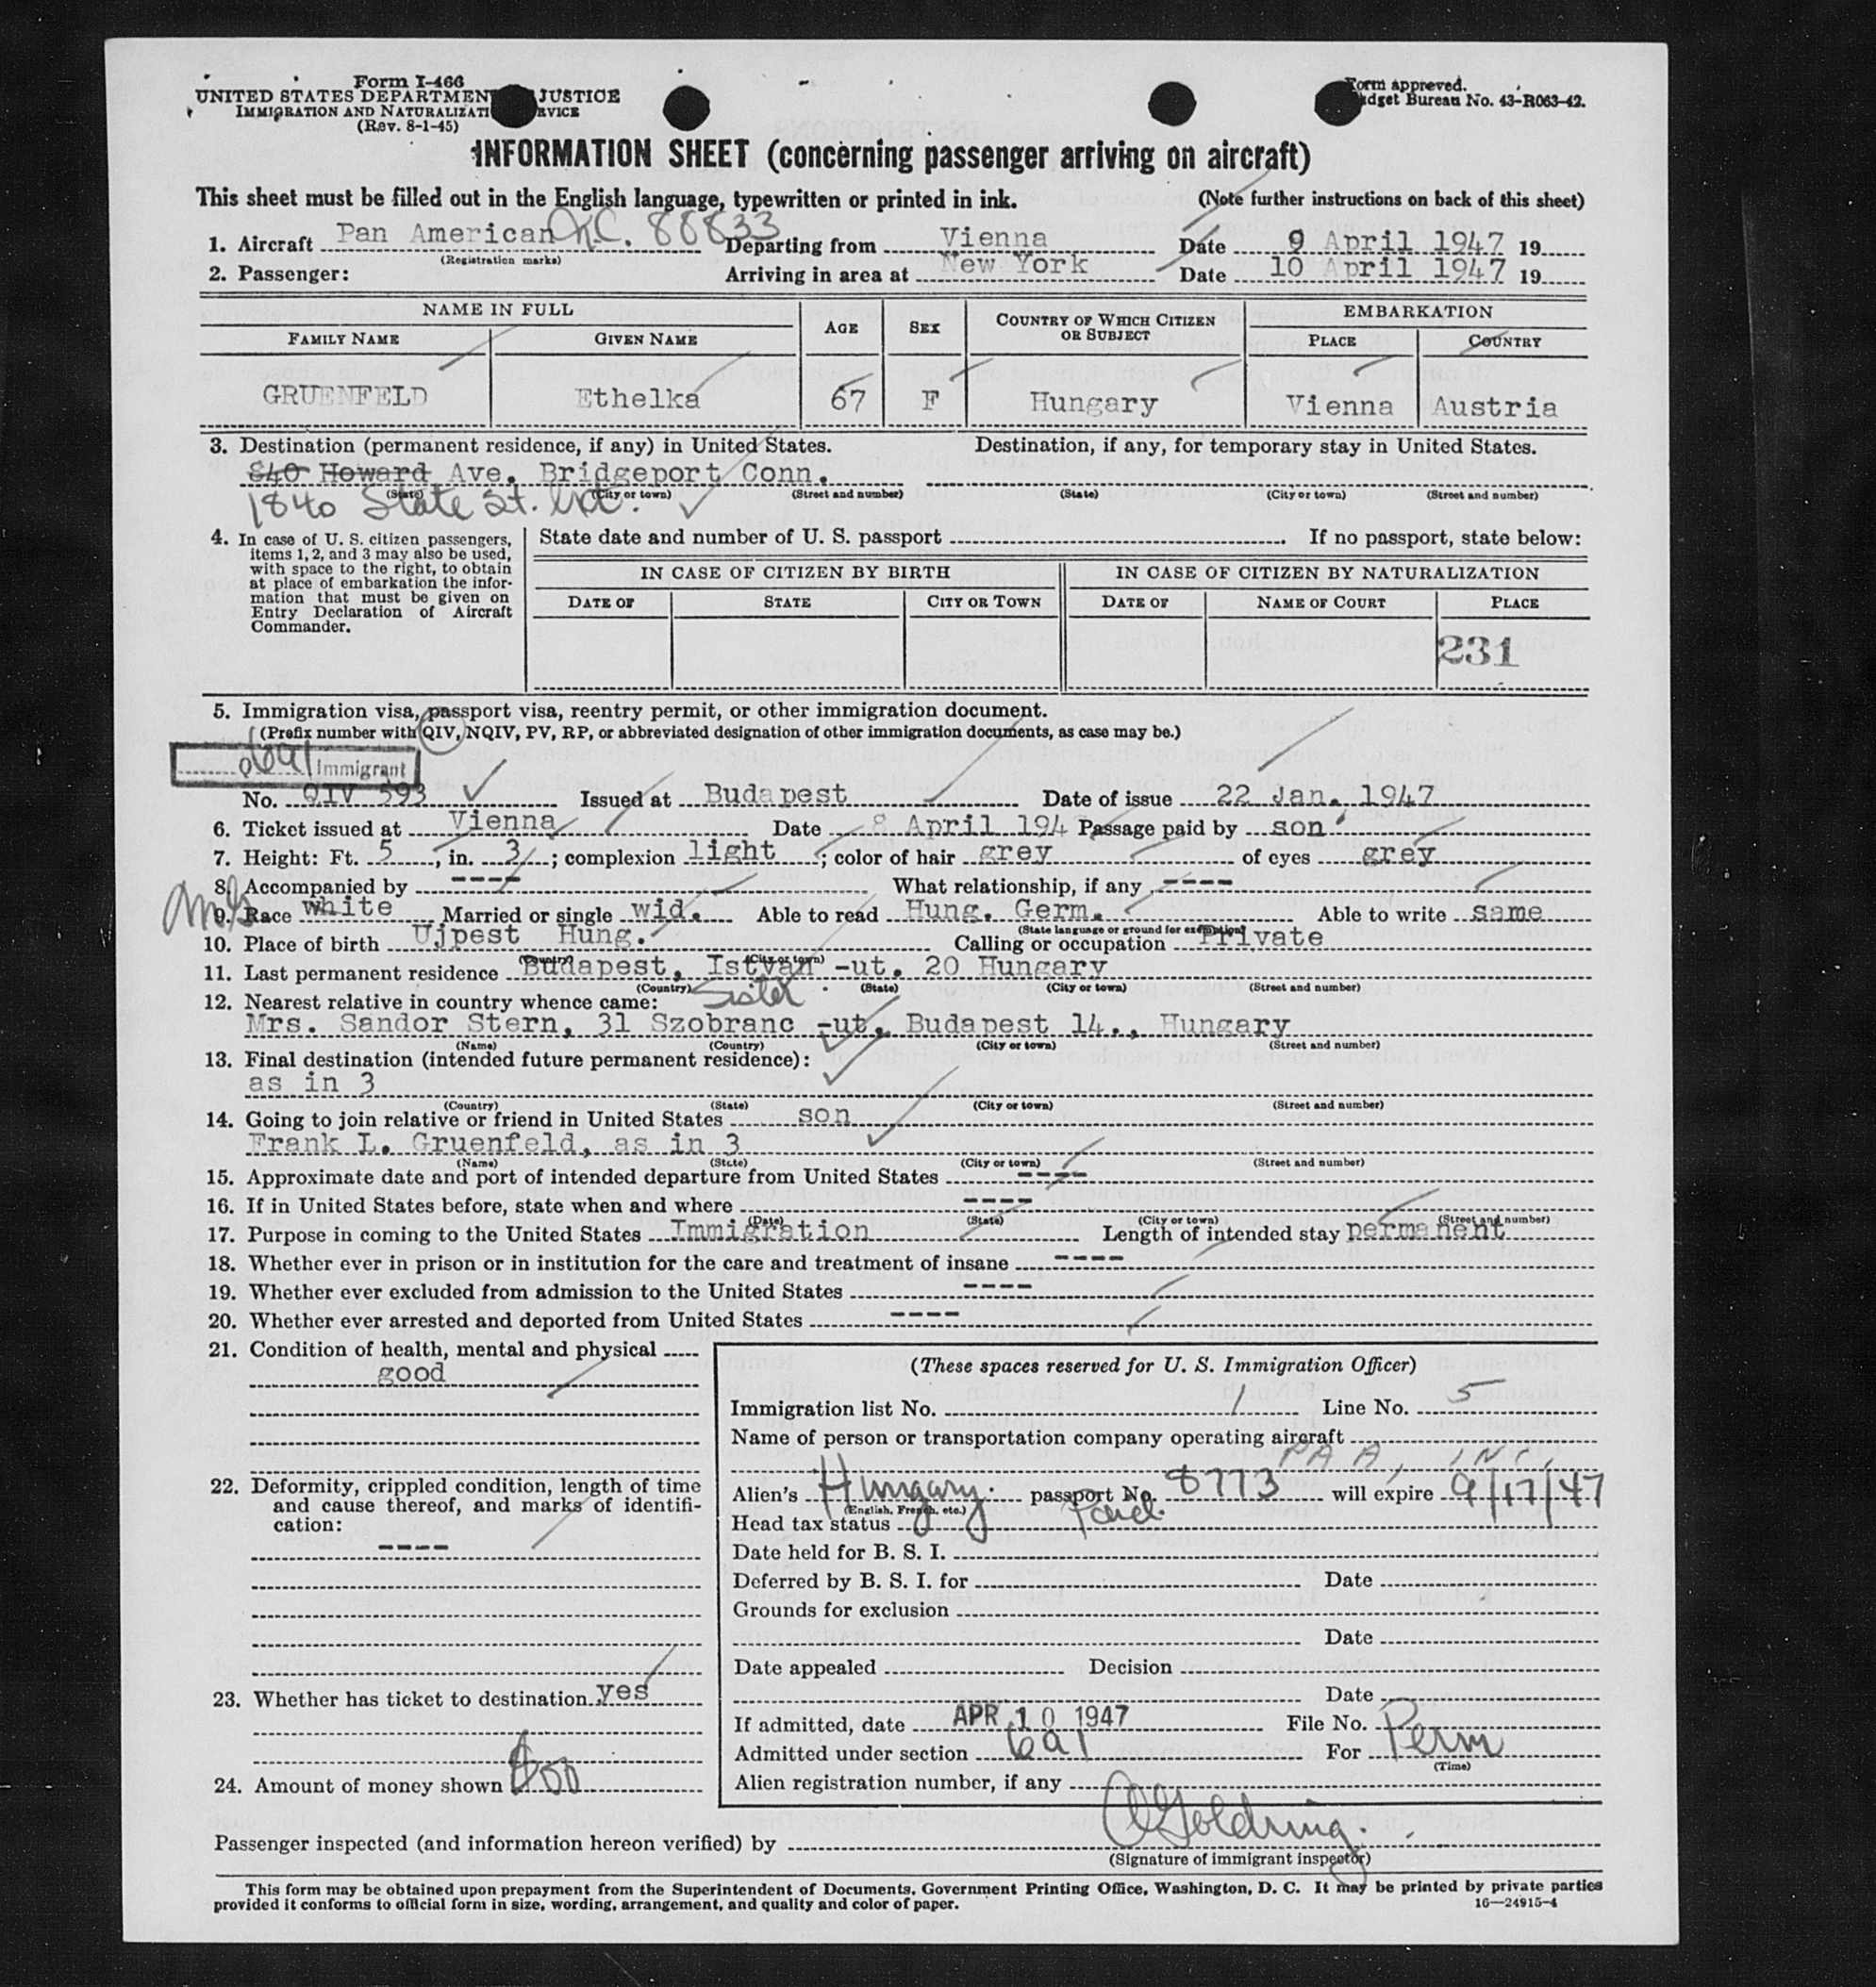 Form I-466
UNITED STATES DEPARTMENT JUSTICE
IMMIGRATION AND NATURALIZATI RVICE
(Rev. 8-1-45)
Form approved.
dget Bureau No. 43-R063-42.
INFORMATION SHEET (concerning passenger arriving on aircraft)
This sheet must be filled out in the English language, typewritten or printed in ink. (Note further instructions on back of this sheet)
1. Aircraft Pan American N.C. 88833 Departing from Vienna Date 9 April 1947 19
(Registration marks)
2. Passenger: Arriving in area at New York Date 10 April 1947 19
NAME IN FULL AGE SEX COUNTRY OF WHICH CITIZEN OR SUBJECT EMBARKATION
FAMILY NAME GIVEN NAME PLACE COUNTRY
GRUENFELD Ethelka 67 F Hungary Vienna Austria
3. Destination (permanent residence, if any) in United States. Destination, if any, for temporary stay in United States.
840 Howard Ave. Bridgeport Conn.
(State) (City or town) (Street and number) (State) (City or town) (Street and number)
1840 State St. Ext.
4. In case of U. S. citizen passengers, items 1, 2, and 3 may also be used, with space to the right, to obtain at place of embarkation the information that must be given on Entry Declaration of Aircraft Commander.
State date and number of U. S. passport If no passport, state below:
IN CASE OF CITIZEN BY BIRTH IN CASE OF CITIZEN BY NATURALIZATION
DATE OF STATE CITY OR TOWN DATE OF NAME OF COURT PLACE
231
5. Immigration visa, passport visa, reentry permit, or other immigration document.
(Prefix number with QIV, NQIV, PV, RP, or abbreviated designation of other immigration documents, as case may be.)
6a1 Immigrant
No. QIV 593 Issued at Budapest Date of issue 22 Jan. 1947
6. Ticket issued at Vienna Date 8 April 194 Passage paid by son
7. Height: Ft. 5, in. 3; complexion light; color of hair grey of eyes grey
8. Accompanied by ---- What relationship, if any ----
9. Race white Married or single wid. Able to read Hung. Germ. Able to write same
(State language or ground for exemption)
10. Place of birth Ujpest Hung. Calling or occupation Private
(Country) (City or town)
11. Last permanent residence Budapest, Istvan -ut. 20 Hungary
(Country) (State) (City or town) (Street and number)
12. Nearest relative in country whence came: Sister
Mrs. Sandor Stern, 31 Szobranc -ut. Budapest 14., Hungary
(Name) (Country) (City or town) (Street and number)
13. Final destination (intended future permanent residence):
as in 3
(Country) (State) (City or town) (Street and number)
14. Going to join relative or friend in United States son
Frank L. Gruenfeld, as in 3
(Name) (State) (City or town) (Street and number)
15. Approximate date and port of intended departure from United States ----
16. If in United States before, state when and where ----
(Date) (State) (City or town) (Street and number)
17. Purpose in coming to the United States Immigration Length of intended stay permanent
18. Whether ever in prison or in institution for the care and treatment of insane ----
19. Whether ever excluded from admission to the United States ----
20. Whether ever arrested and deported from United States ----
21. Condition of health, mental and physical
good
22. Deformity, crippled condition, length of time and cause thereof, and marks of identification:
----
23. Whether has ticket to destination yes
24. Amount of money shown $50
(These spaces reserved for U. S. Immigration Officer)
Immigration list No. 1 Line No. 5
Name of person or transportation company operating aircraft
PAA, INC.
Alien's Hungary passport No. 8773 will expire 9/17/47
(English, French, etc.)
Head tax status Paid
Date held for B. S. I.
Deferred by B. S. I. for Date
Grounds for exclusion
Date
Date appealed Decision
Date
If admitted, date APR 10 1947 File No.
Admitted under section 6a1 For Perm
(Time)
Alien registration number, if any
Passenger inspected (and information hereon verified) by Goldring
(Signature of immigrant inspector)
This form may be obtained upon prepayment from the Superintendent of Documents, Government Printing Office, Washington, D. C. It may be printed by private parties
provided it conforms to official form in size, wording, arrangement, and quality and color of paper. 16—24915-4